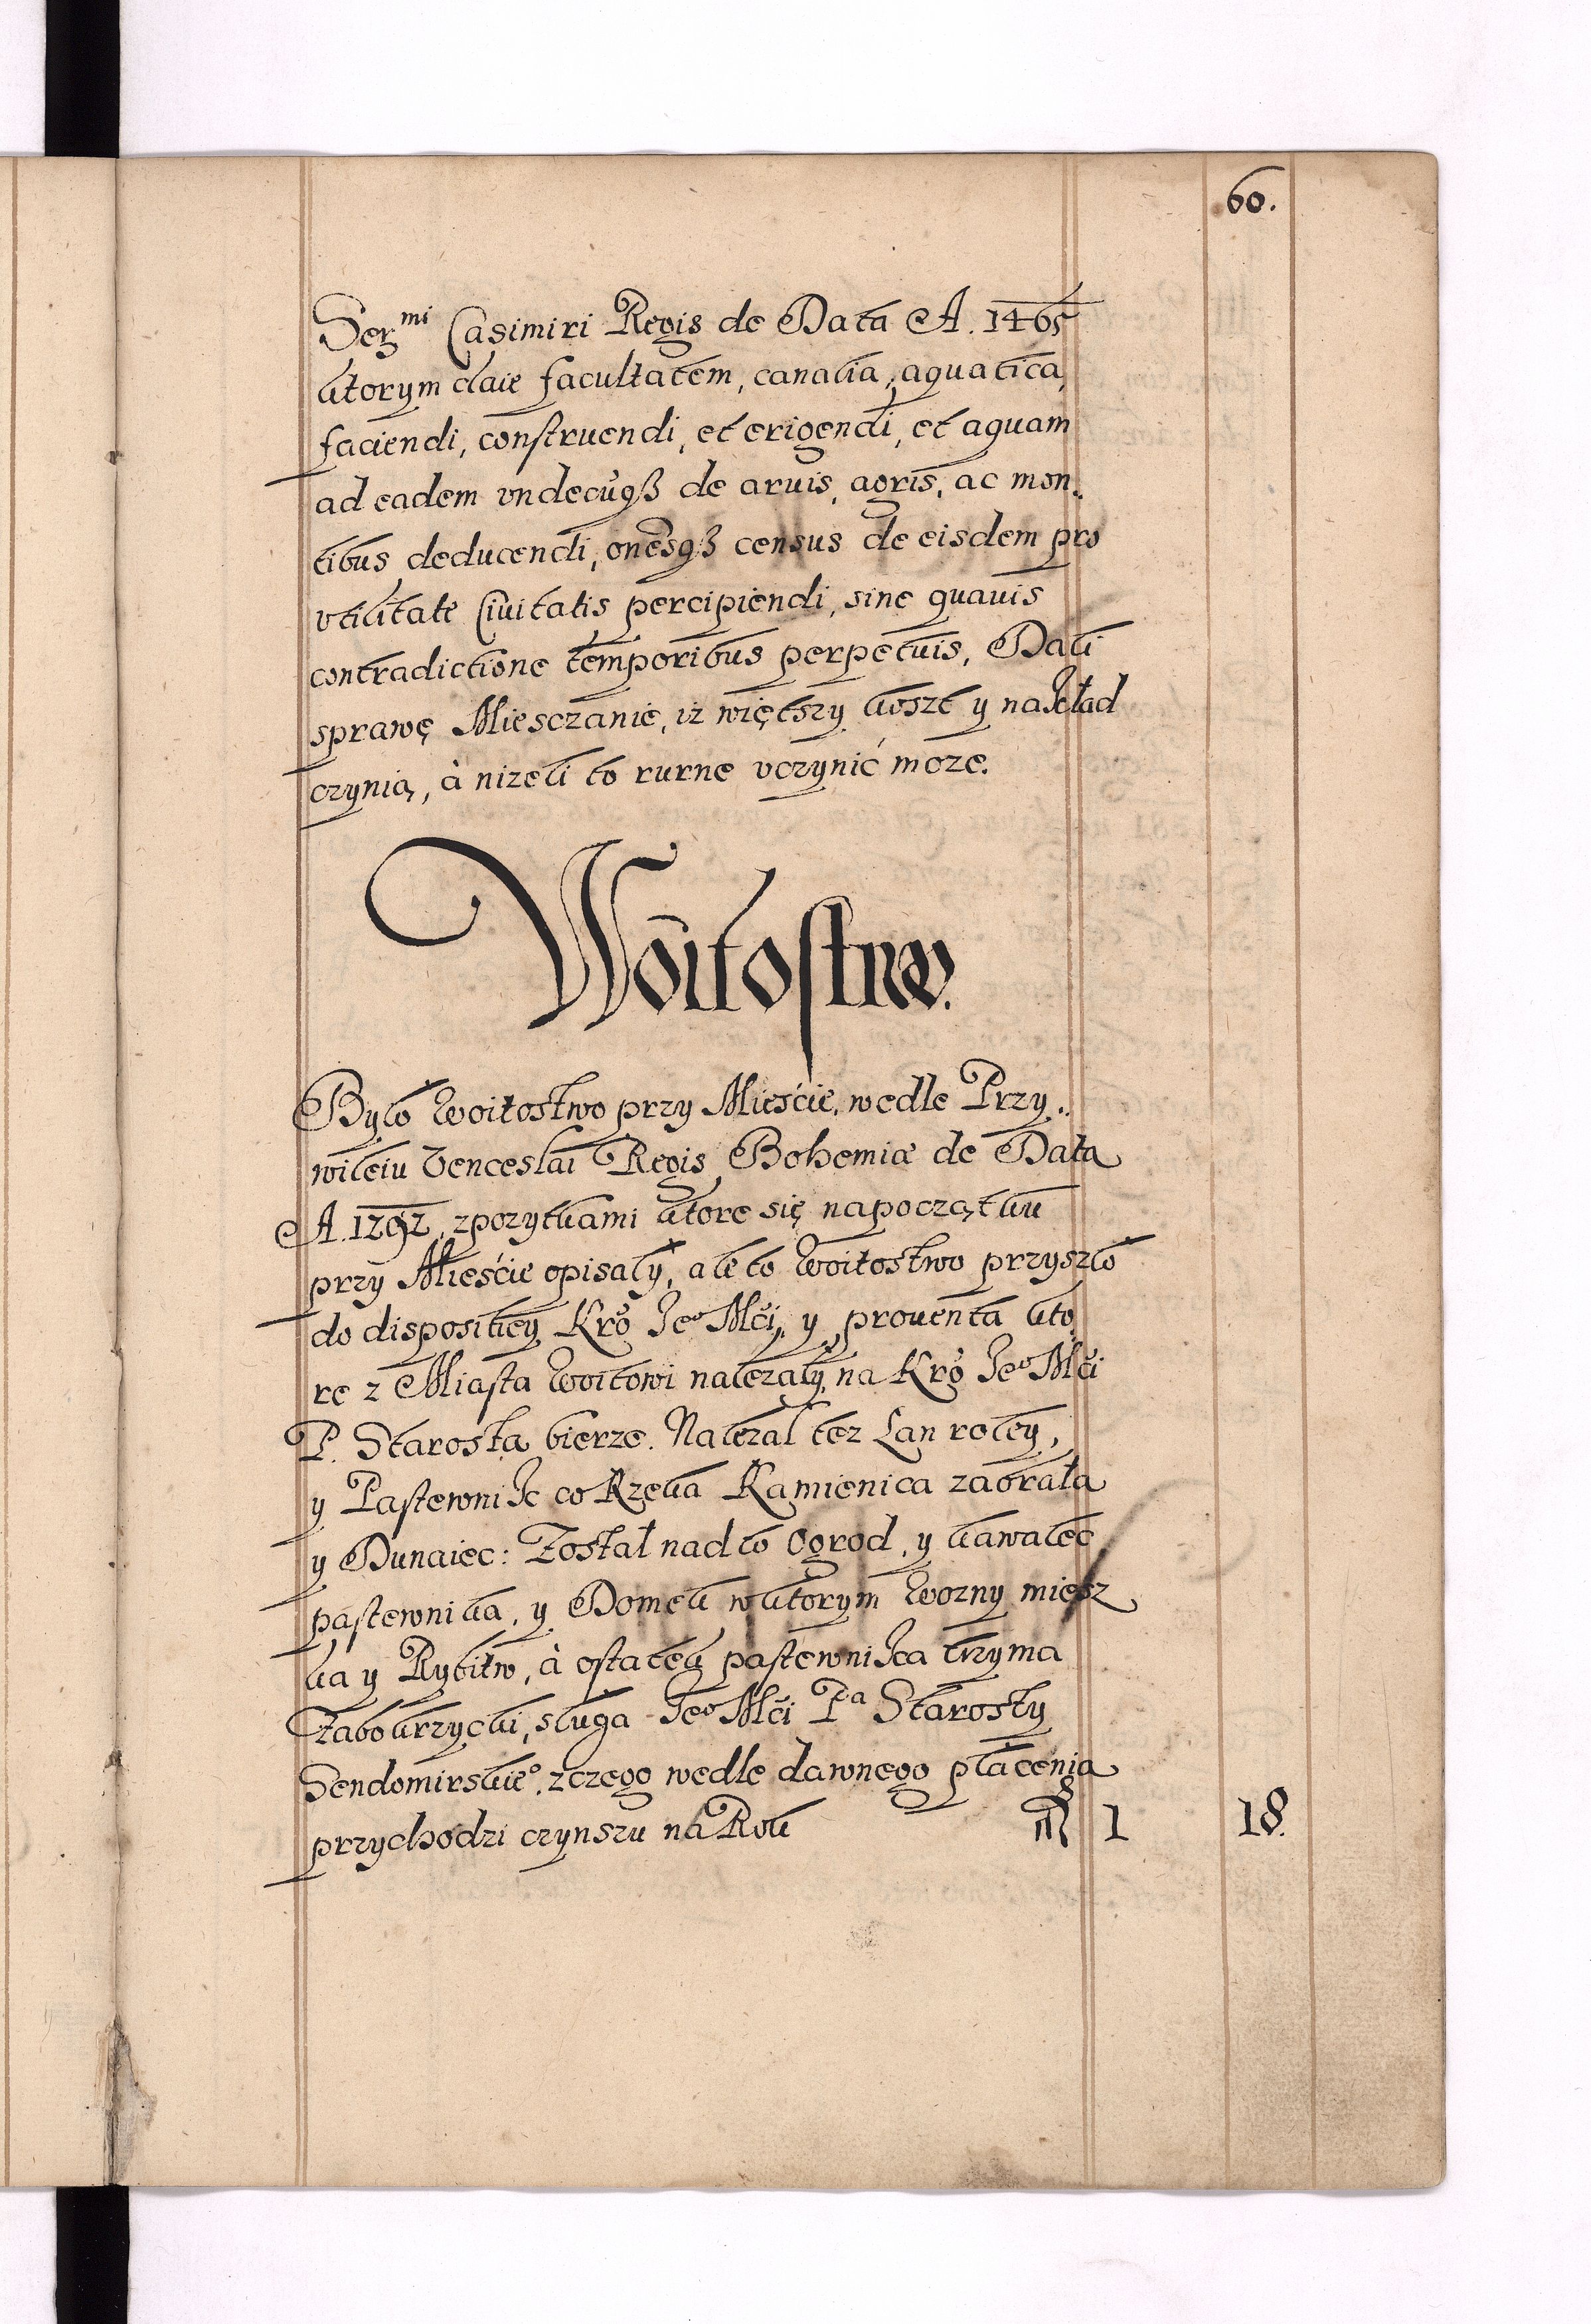 60.
Ser^mi Casimiri Regis de Data A. 1465
ktorym daie facultatem, canalia, aquatica,
faciendi, construendi, et erigendi, et aquam
ad eadem vndecūqꝫ de aruis, agris, ac mon„
tibus deducendi, onēsqꝫ census de eisdem pro
vtilitate Ciuitatis percipiendi, sine quauis
contradictione temporibus perpetuis, Dali
sprawę Miesczanie, iz większy koszt y nakład
czynią, à nizeli to rurne vczynić moze.
Woitostwo.
Było Woitostwo przy Mieście, wedle Przy„
wileiu Venceslai Regis Bohemiæ de Data
A. 1292, z pozytkami ktore się na początku
przy Mieście opisały, ale to Woitostwo przyszło
do dispositiey Kro Je^o Mći, y prouenta kto
re z Miasta Woitowi nalezały, na Kro Je^o Mći
P. Starosta bierze. Nalezał tez Łan roley,
y Pastewnik co Rzeka Kamienica zaorała
y Dunaiec: Został nad to Ogrod, y kawalec
pastewnika, y Domek w ktorym Wozny miesz
ka y Rybitw, à ostatek pastewnika trzyma
Zabokrzycki, sługa Je^o Mći P^a Starosty
Sendomirskie^o, z czego wedle dawnego płacenia
przychodzi czynszu na Rok 1 18.